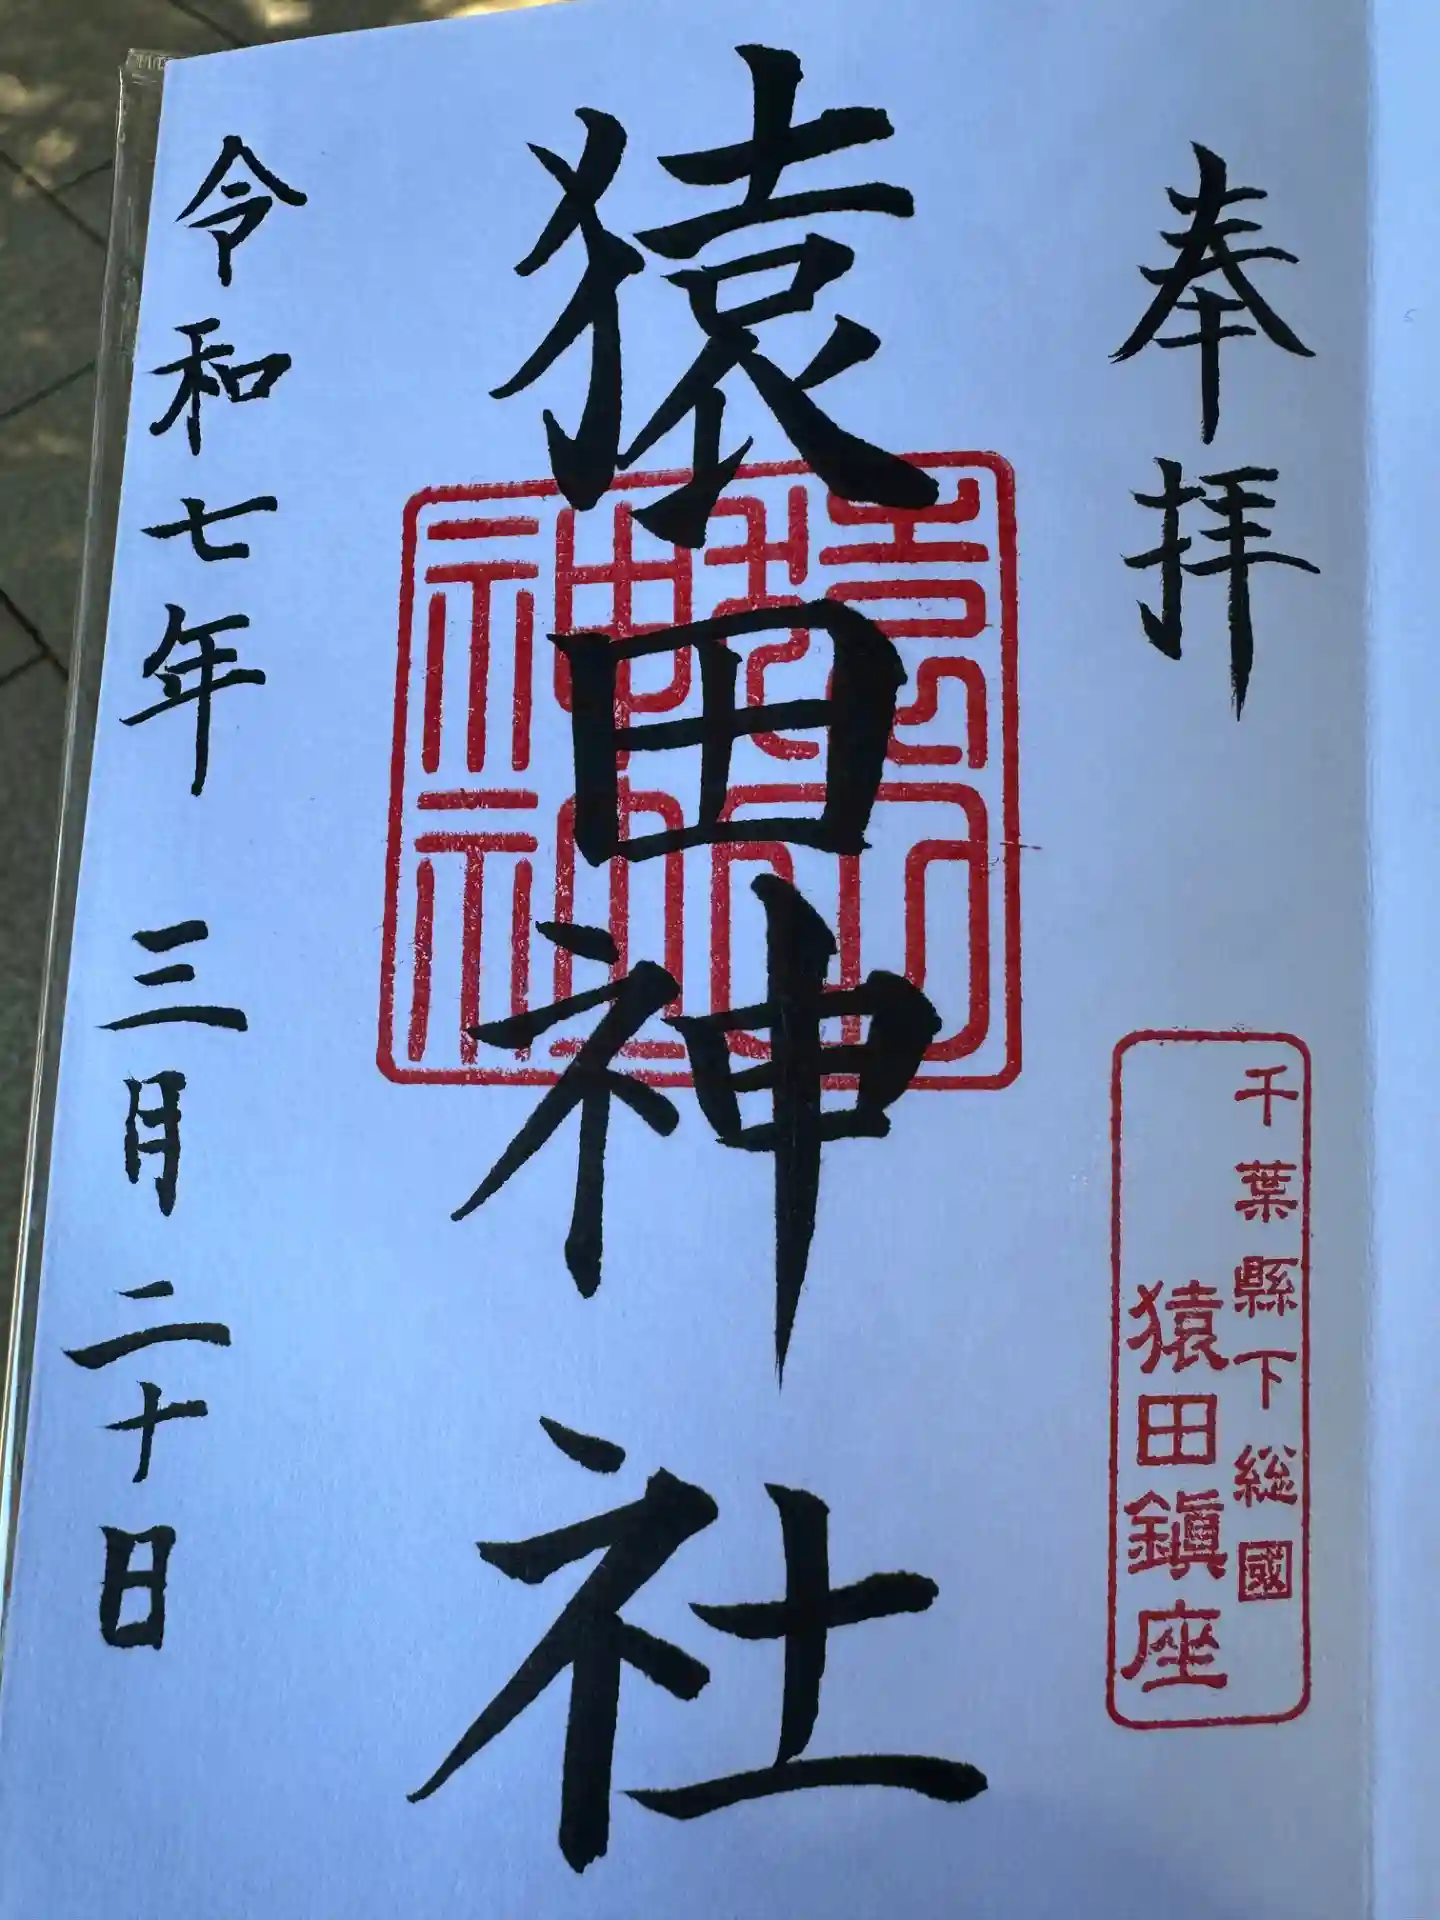 奉拝
千葉縣下総國
猿田鎮座
猿田神社
令和七年 三月二十日